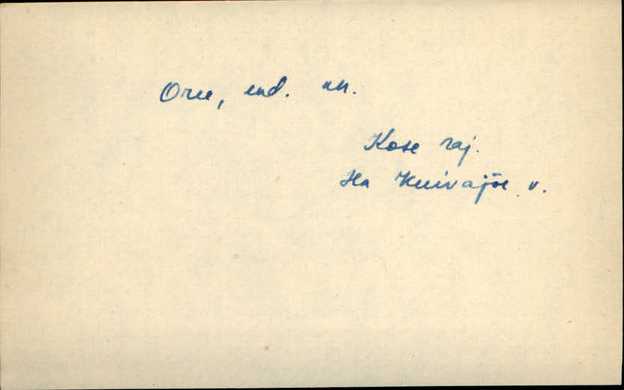 Oru, end. mn.
Kose raj.
Ha Kuivajõe v.